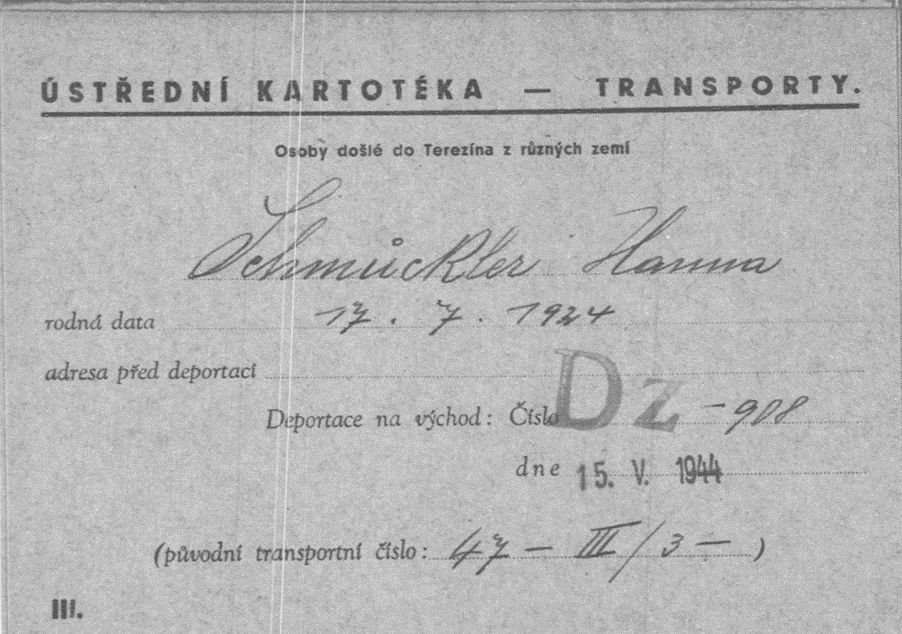 ÚSTŘEDNÍ KARTOTÉKA — TRANSPORTY.
Osoby došlé do Terezína z různých zemí
Schmückler Hanna
rodná data 17. 7. 1924
adresa před deportací
Deportace na východ: Číslo Dz -908
dne 15. V. 1944
(původní transportní číslo: 47 — III/3 — )
III.